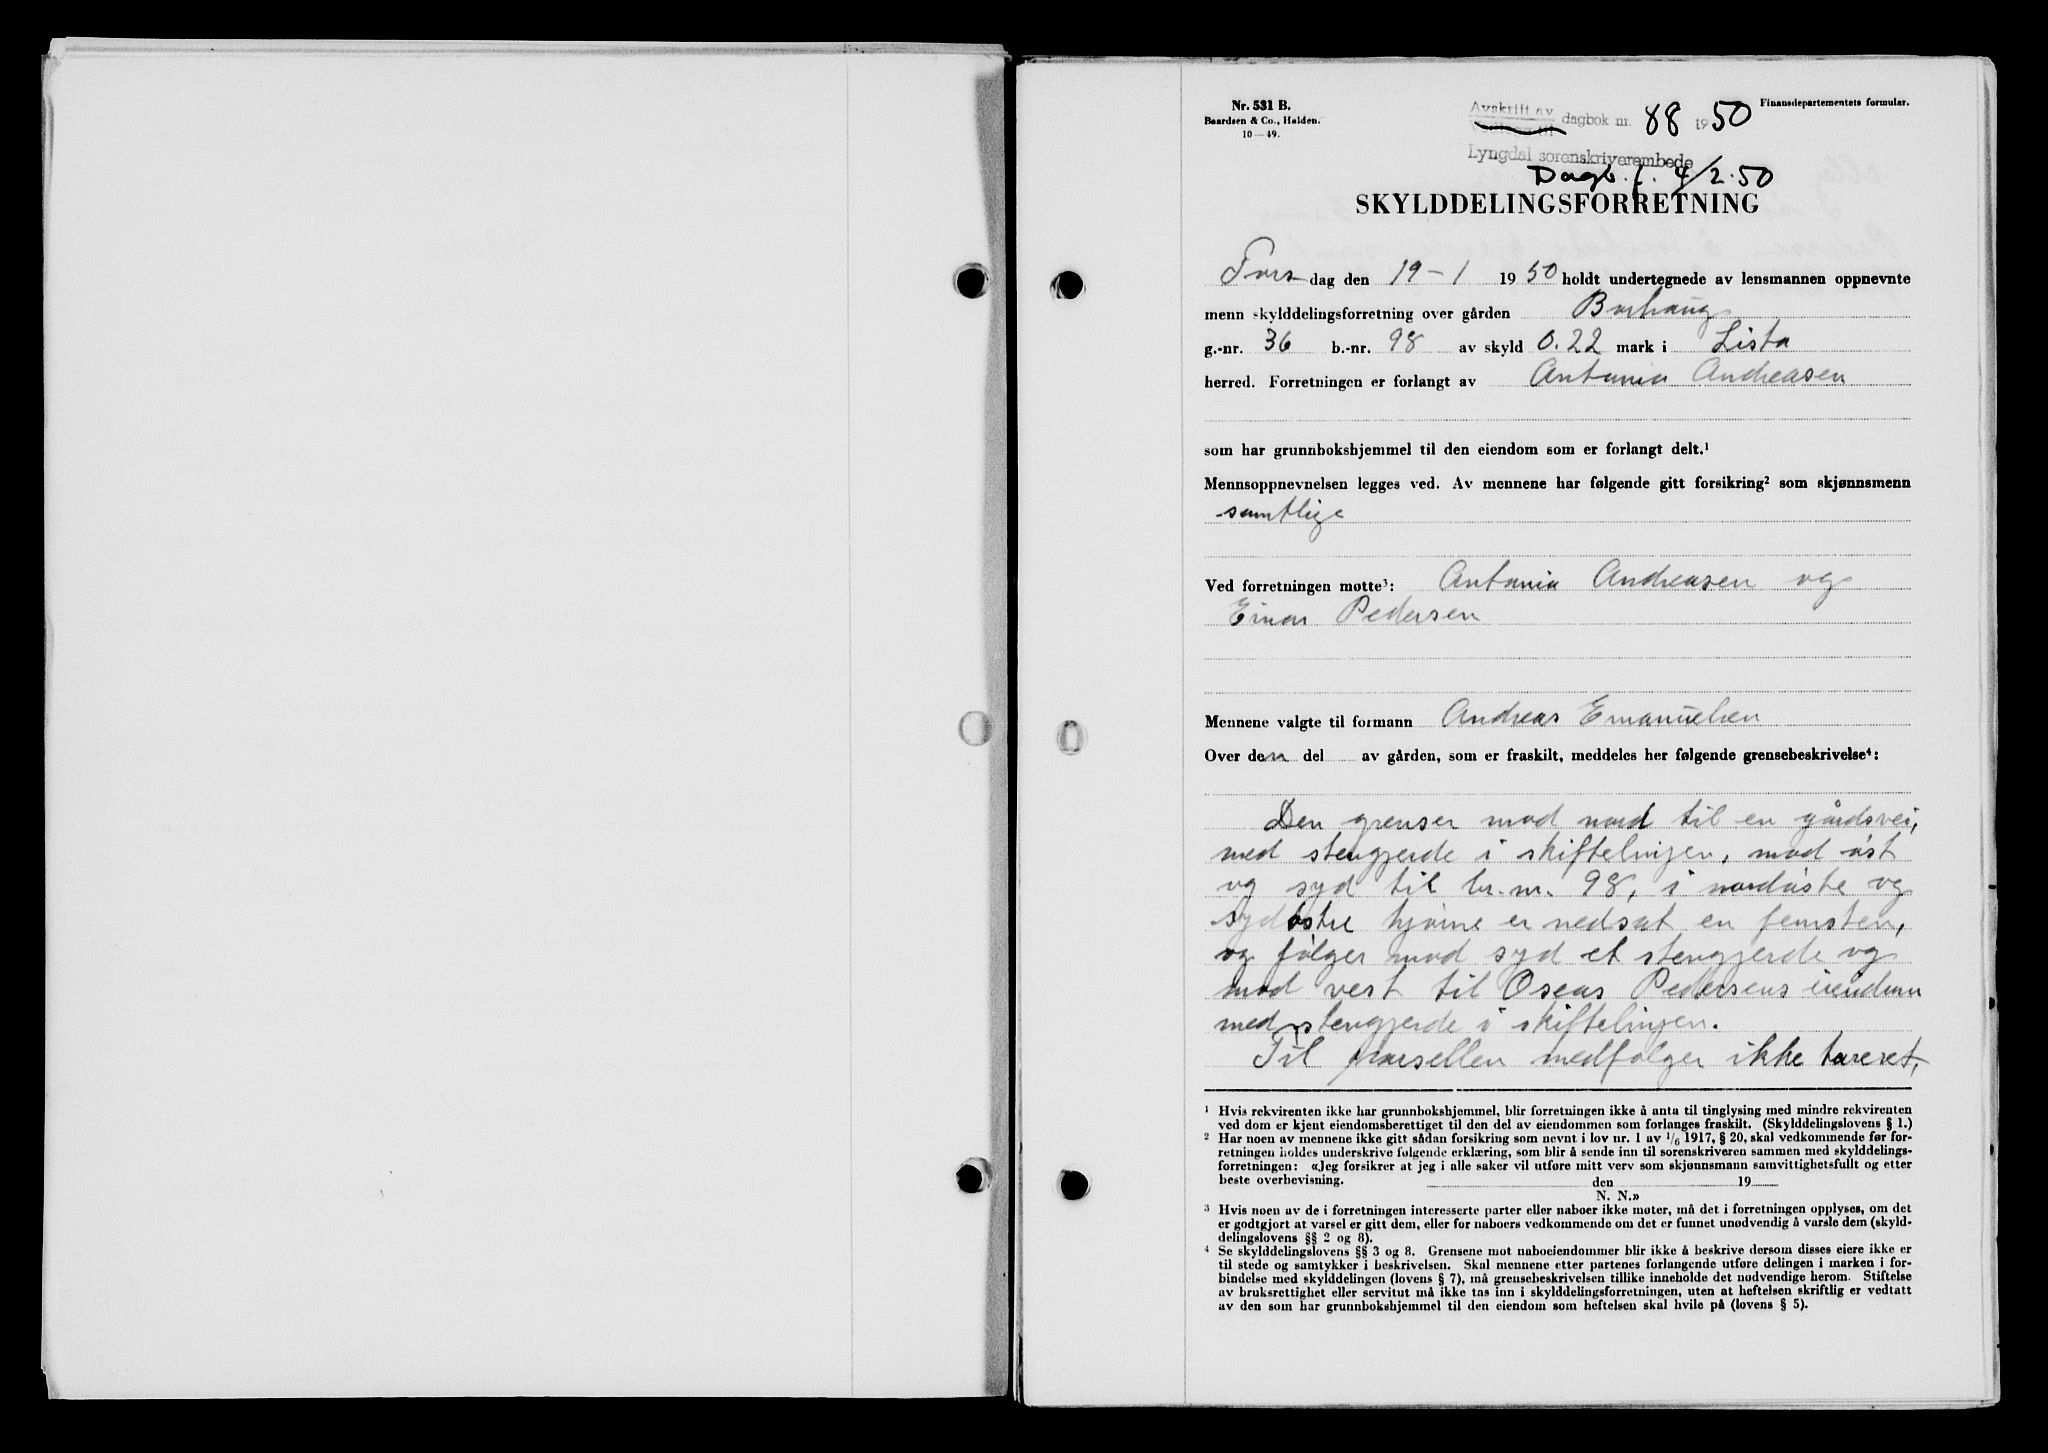 Nr. 531 B.
Baardsen & Co., Halden.
10—49.
Avskrift av
dagbok nr. 88 1950
Finansdepartementets formular.
Lyngdal sorenskriverembede
Dagb. f. 4/2.50
SKYLDDELINGSFORRETNING
Tors dag den 19-1 1950 holdt undertegnede av lensmannen oppnevnte
menn skylddelingsforretning over gården Borhaug
g.-nr. 36 b.-nr. 98 av skyld 0.22 mark i Lista
herred. Forretningen er forlangt av Antonia Andreasen
som har grunnbokshjemmel til den eiendom som er forlangt delt.¹
Mennsoppnevnelsen legges ved. Av mennene har følgende gitt forsikring² som skjønnsmenn
samtlige
Ved forretningen møtte³: Antonia Andreasen og
Einar Pedersen
Mennene valgte til formann Andreas Emanuelsen
Over den del av gården, som er fraskilt, meddeles her følgende grensebeskrivelse⁴:
Den grenser mod nord til en gårdsvei,
med stengjerde i skiftelinjen, mod øst
og syd til br.nr. 98, i nordøste og
sydøstre hjørne er nedsat en femsten,
og følger mod syd et stengjerde og
mod vest til Oscar Pedersens eiendom
med stengjerde i skiftelinjen.
Til parsellen medfølger ikke tareret,
¹ Hvis rekvirenten ikke har grunnbokshjemmel, blir forretningen ikke å anta til tinglysing med mindre rekvirenten
ved dom er kjent eiendomsberettiget til den del av eiendommen som forlanges fraskilt. (Skylddelingslovens § 1.)
² Har noen av mennene ikke gitt sådan forsikring som nevnt i lov nr. 1 av 1/6 1917, § 20, skal vedkommende før for-
retningen holdes underskrive følgende erklæring, som blir å sende inn til sorenskriveren sammen med skylddelings-
forretningen: «Jeg forsikrer at jeg i alle saker vil utføre mitt verv som skjønnsmann samvittighetsfullt og etter
beste overbevisning. den 19
N. N.»
³ Hvis noen av de i forretningen interesserte parter eller naboer ikke møter, må det i forretningen opplyses, om det
er godtgjort at varsel er gitt dem, eller for naboers vedkommende om det er funnet unødvendig å varsle dem (skyld-
delingslovens §§ 2 og 8).
⁴ Se skylddelingslovens §§ 3 og 8. Grensene mot naboeiendommer blir ikke å beskrive dersom disses eiere ikke er
til stede og samtykker i beskrivelsen. Skal mennene etter partenes forlangende utføre delingen i marken i for-
bindelse med skylddelingen (lovens § 7), må grensebeskrivelsen tillike inneholde det nødvendige herom. Stiftelse
av bruksrettighet eller servitut må ikke tas inn i skylddelingsforretningen, uten at heftelsen skriftlig er vedtatt
av den som har grunnbokshjemmel til den eiendom som heftelsen skal hvile på (lovens § 5).